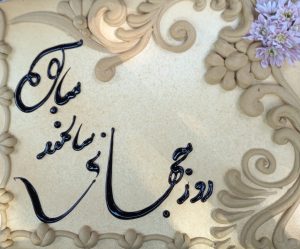 روز جهانی
سالمند
مبارک